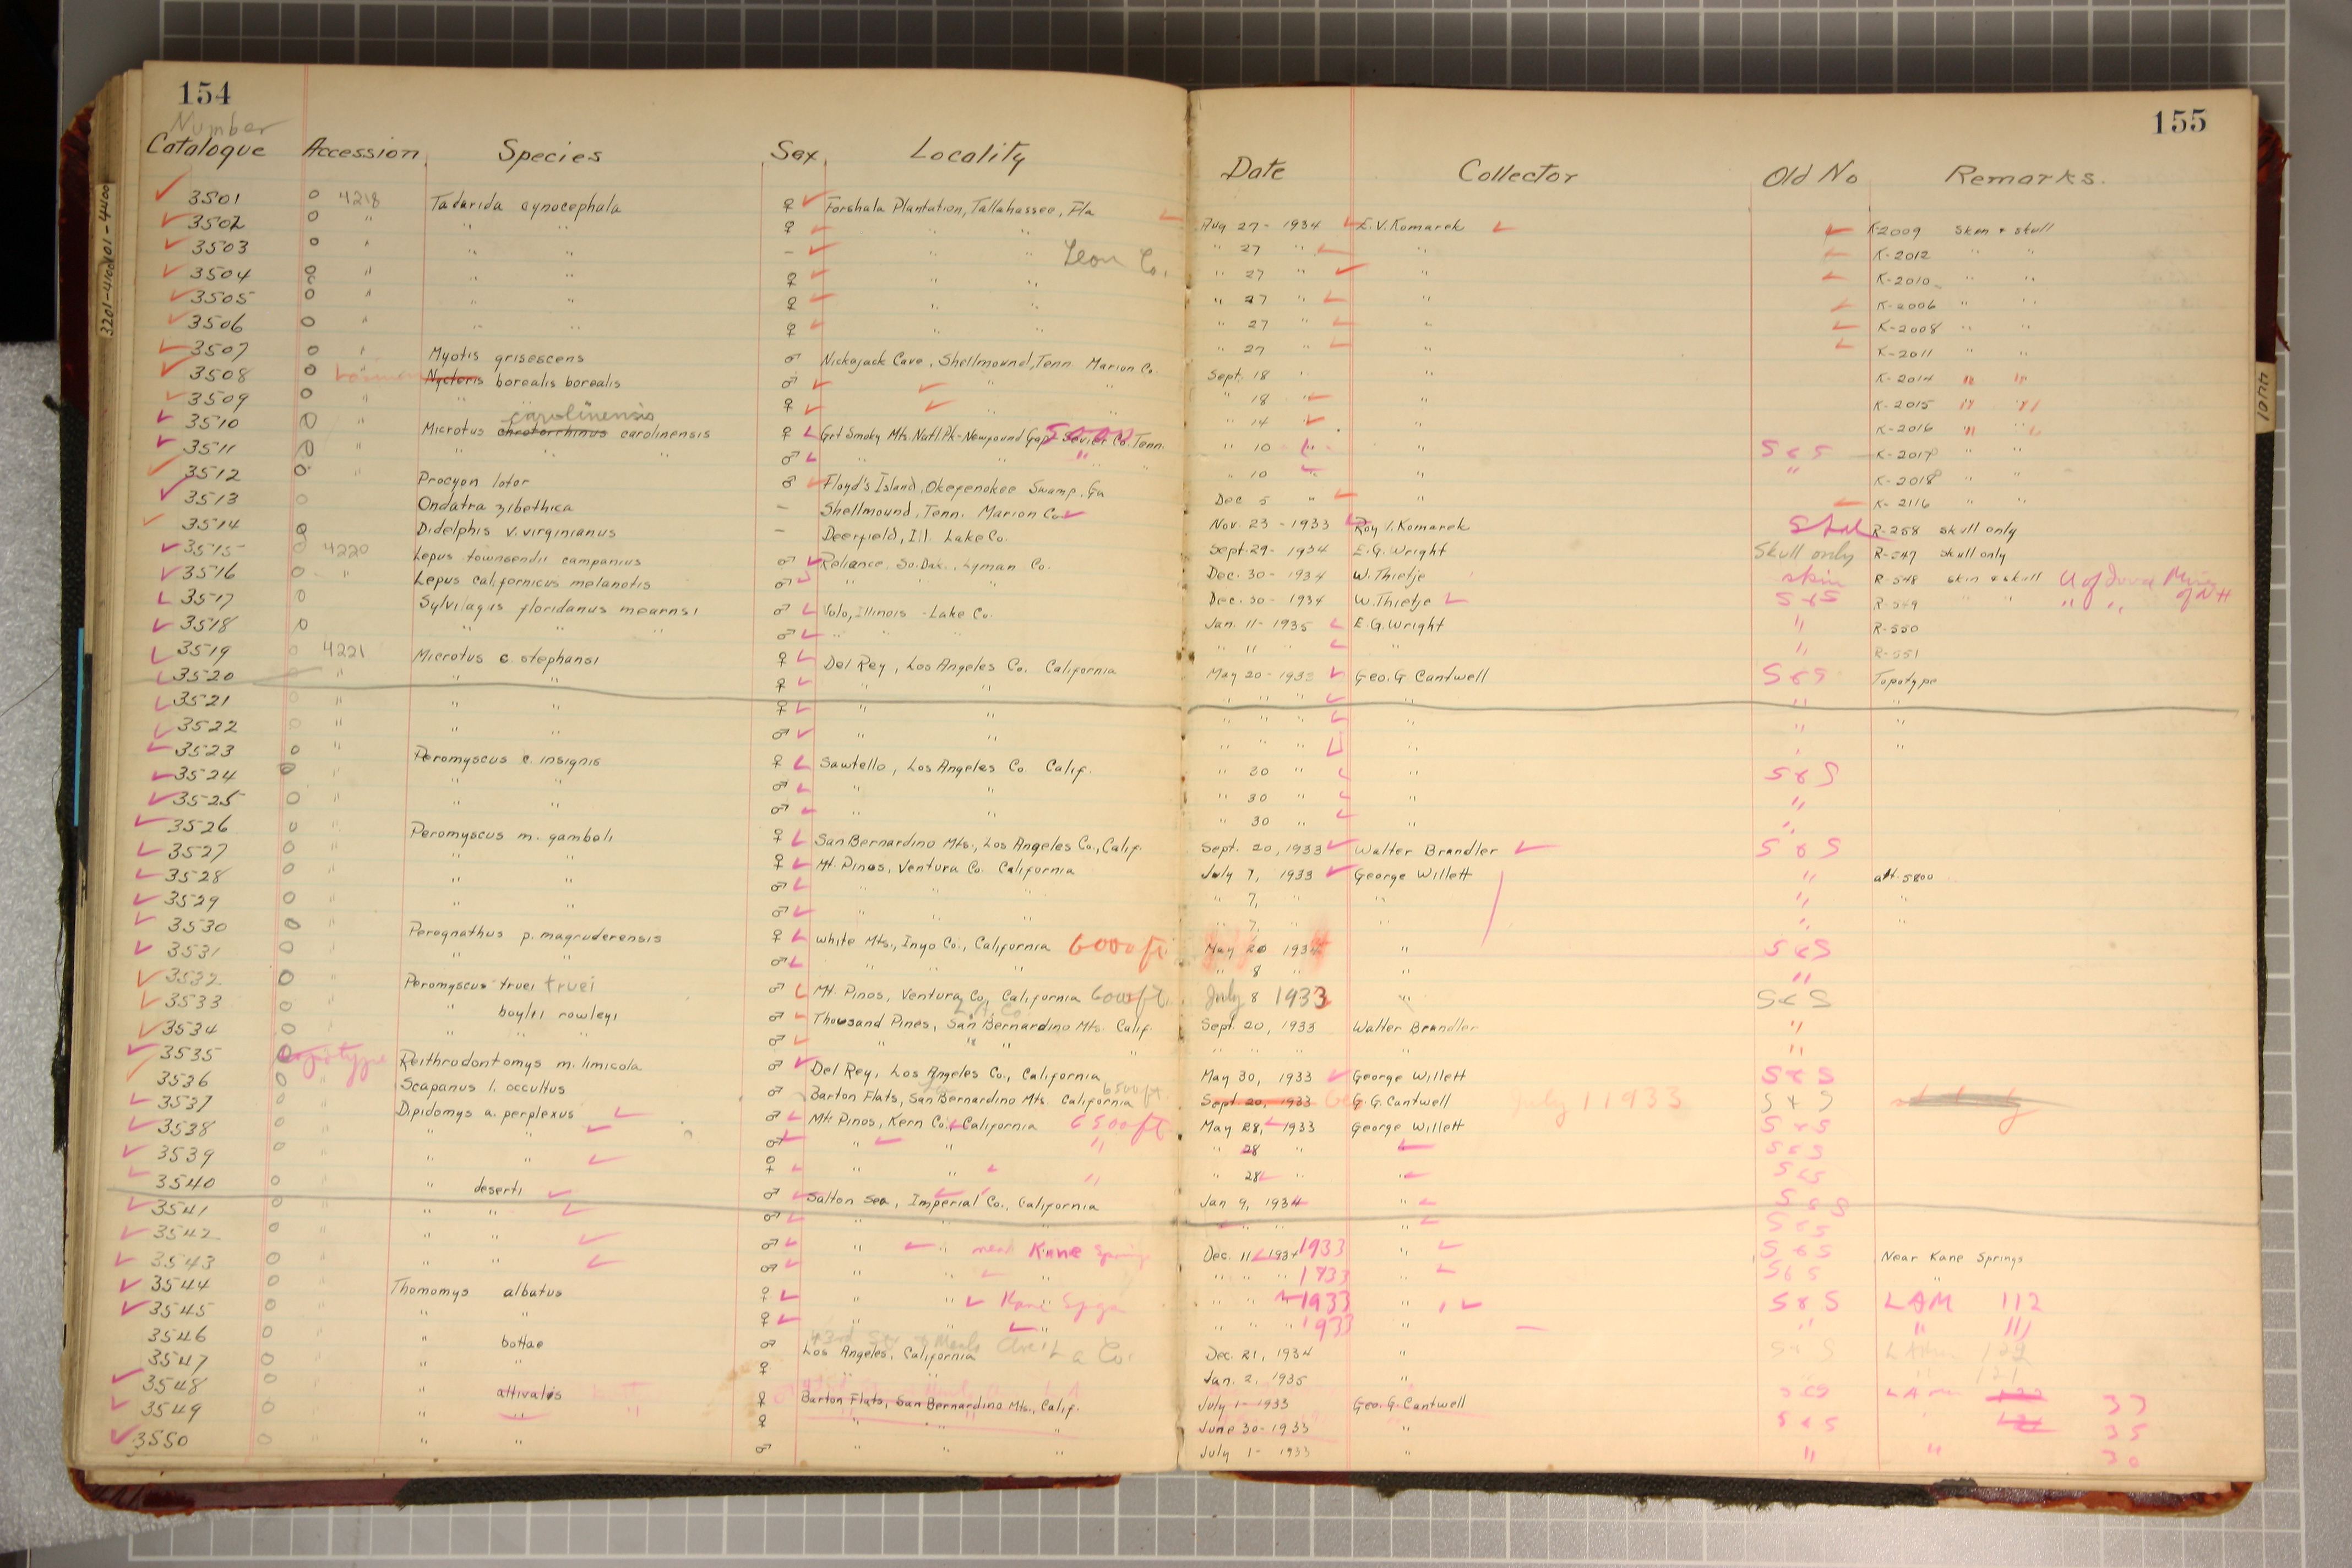 154
155
Number
Catalogue Accession Species Sex Locality Date Collector Old No Remarks.
3501 0 4218 Tadarida cynocephala ♀ Forshala Plantation, Tallahassee, Fla Aug 27 - 1934 E.V. Komarek K2009 Skin & skull
3502 0 " " " ♀ " " " 27 " " K-2012 " "
3503 0 " " " - " " Leon Co. " 27 " " K-2010 " "
3504 0 " " " ♀ " " " 27 " " K-2006 " "
3505 0 " " " ♀ " " " 27 " " K-2008 " "
3506 0 " " " ♀ " " " 27 " " K-2011 " "
3507 0 " Myotis grisescens ♂ Nickajack Cave, Shellmound, Tenn. Marion Co. Sept. 18 " " K-2014 " "
3508 0 " Nycteris borealis borealis ♂ " " " 18 " " K-2015 " "
3509 0 " " " ♀ " " " 14 " " K-2016 " "
carolinensis
3510 0 " Microtus chrotorrhinus carolinensis ♀ Grt Smoky Mts. Natl. Pk-Newfound Gap 5000 Sevier Co. Tenn. " 10 " " S & S K-2017 " "
3511 0 " " " " ♂ " " " " 10 " " " K-2018 " "
3512 0 Procyon lotor ♂ Floyd's Island, Okefenokee Swamp, Ga Dec 5 " " K-2116 " "
3513 0 Ondatra zibethica - Shellmound, Tenn. Marion Co. Nov. 23 - 1933 Roy V. Komarek R-258 skull only
3514 0 Didelphis v. virginianus - Deerfield, Ill. Lake Co. Sept. 29 - 1934 E.G. Wright Skull only R-547 skull only
3515 0 4220 Lepus townsendii campanius ♂ Reliance, So. Dak., Lyman Co. Dec. 30 - 1934 W. Thietje skin R-548 skin & skull U of Iowa Mus
3516 0 " Lepus californicus melanotis ♂ " " " Dec. 30 - 1934 W. Thietje S & S R-549 " " " " of N H
3517 0 Sylvilagus floridanus mearnsi ♂ Volo, Illinois - Lake Co. Jan. 11 - 1935 E.G. Wright " R-550
3518 0 " " " ♂ " " " " 11 " " " R-551
3519 0 4221 Microtus c. stephansi ♀ Del Rey, Los Angeles Co. California May 20 - 1933 Geo. G Cantwell S & S Topotype
3520 " " " ♀ " " " " " " " "
3521 0 " " " ♀ " " " " " " " "
3522 0 " " " ♂ " " " " " " " "
3523 0 " Peromyscus c. insignis ♀ Sawtello, Los Angeles Co. Calif. " 30 " " S & S
3524 0 " " " ♂ " " " 30 " " "
3525 0 " " " ♂ " " " 30 " " "
3526 0 " Peromyscus m. gambeli ♀ San Bernardino Mts., Los Angeles Co., Calif. Sept. 20, 1933 Walter Brandler S & S
3527 0 " " " ♀ Mt. Pinos, Ventura Co. California July 7, 1933 George Willett " alt. 5800
3528 0 " " " ♂ " " " " 7, " " " "
3529 0 " " " ♂ " " " " 7, " " " "
3530 0 " Perognathus p. magruderensis ♀ White Mts., Inyo Co., California 6000 ft. May 20 1934 " S & S
3531 0 " " " ♂ " " " " 8 " " "
3532 0 Peromyscus truei truei ♂ Mt. Pinos, Ventura Co, California 6000 ft. July 8 1933 " S & S
3533 0 " boylii rowleyi ♂ Thousand Pines, San Bernardino Mts. Calif. Sept. 20, 1933 Walter Brandler "
3534 0 " " " ♂ " " " " " " " "
3535 0 topotype Reithrodontomys m. limicola ♂ Del Rey, Los Angeles Co., California May 30, 1933 George Willett S & S
3536 0 " Scapanus l. occultus ♂ Barton Flats, San Bernardino Mts. California 6500 ft. Sept 20, 1933 G. G. Cantwell July 1 1933 S & S
3537 0 " Dipidomys a. perplexus ♂ Mt. Pinos, Kern Co., California 6500 ft May 28, 1933 George Willett S & S
3538 0 " " " ♂ " " " " 28 " S & S
3539 0 " " " ♀ " " " " 28 " S & S
3540 0 " " deserti ♂ Salton Sea, Imperial Co., California Jan 9, 1934 " S & S
3541 0 " " " ♂ " " " " " " S & S
3542 0 " " " ♂ " " near Kane Springs Dec. 11 1934 1933 " S & S Near Kane Springs
3543 0 " " " ♂ " " " " " 1933 " S & S "
3544 0 " Thomomys albatus ♀ " " Kane Spgs " " 1933 " S & S LAM 112
3545 0 " " " ♀ " " " " " 1933 " " " 111
3546 0 " " bottae ♂ Los Angeles, California L a Co. Dec. 21, 1934 " S & S
3547 0 " " " ♀ " " Jan. 2, 1935 "
3548 0 " " altivalis ♀ Barton Flats, San Bernardino Mts., Calif. July 1 - 1933 Geo. G. Cantwell S & S LAM 37
3549 0 " " " ♀ " " " June 30 - 1933 " S & S " 35
3550 0 " " " ♂ " " " July 1 - 1933 " " " 30